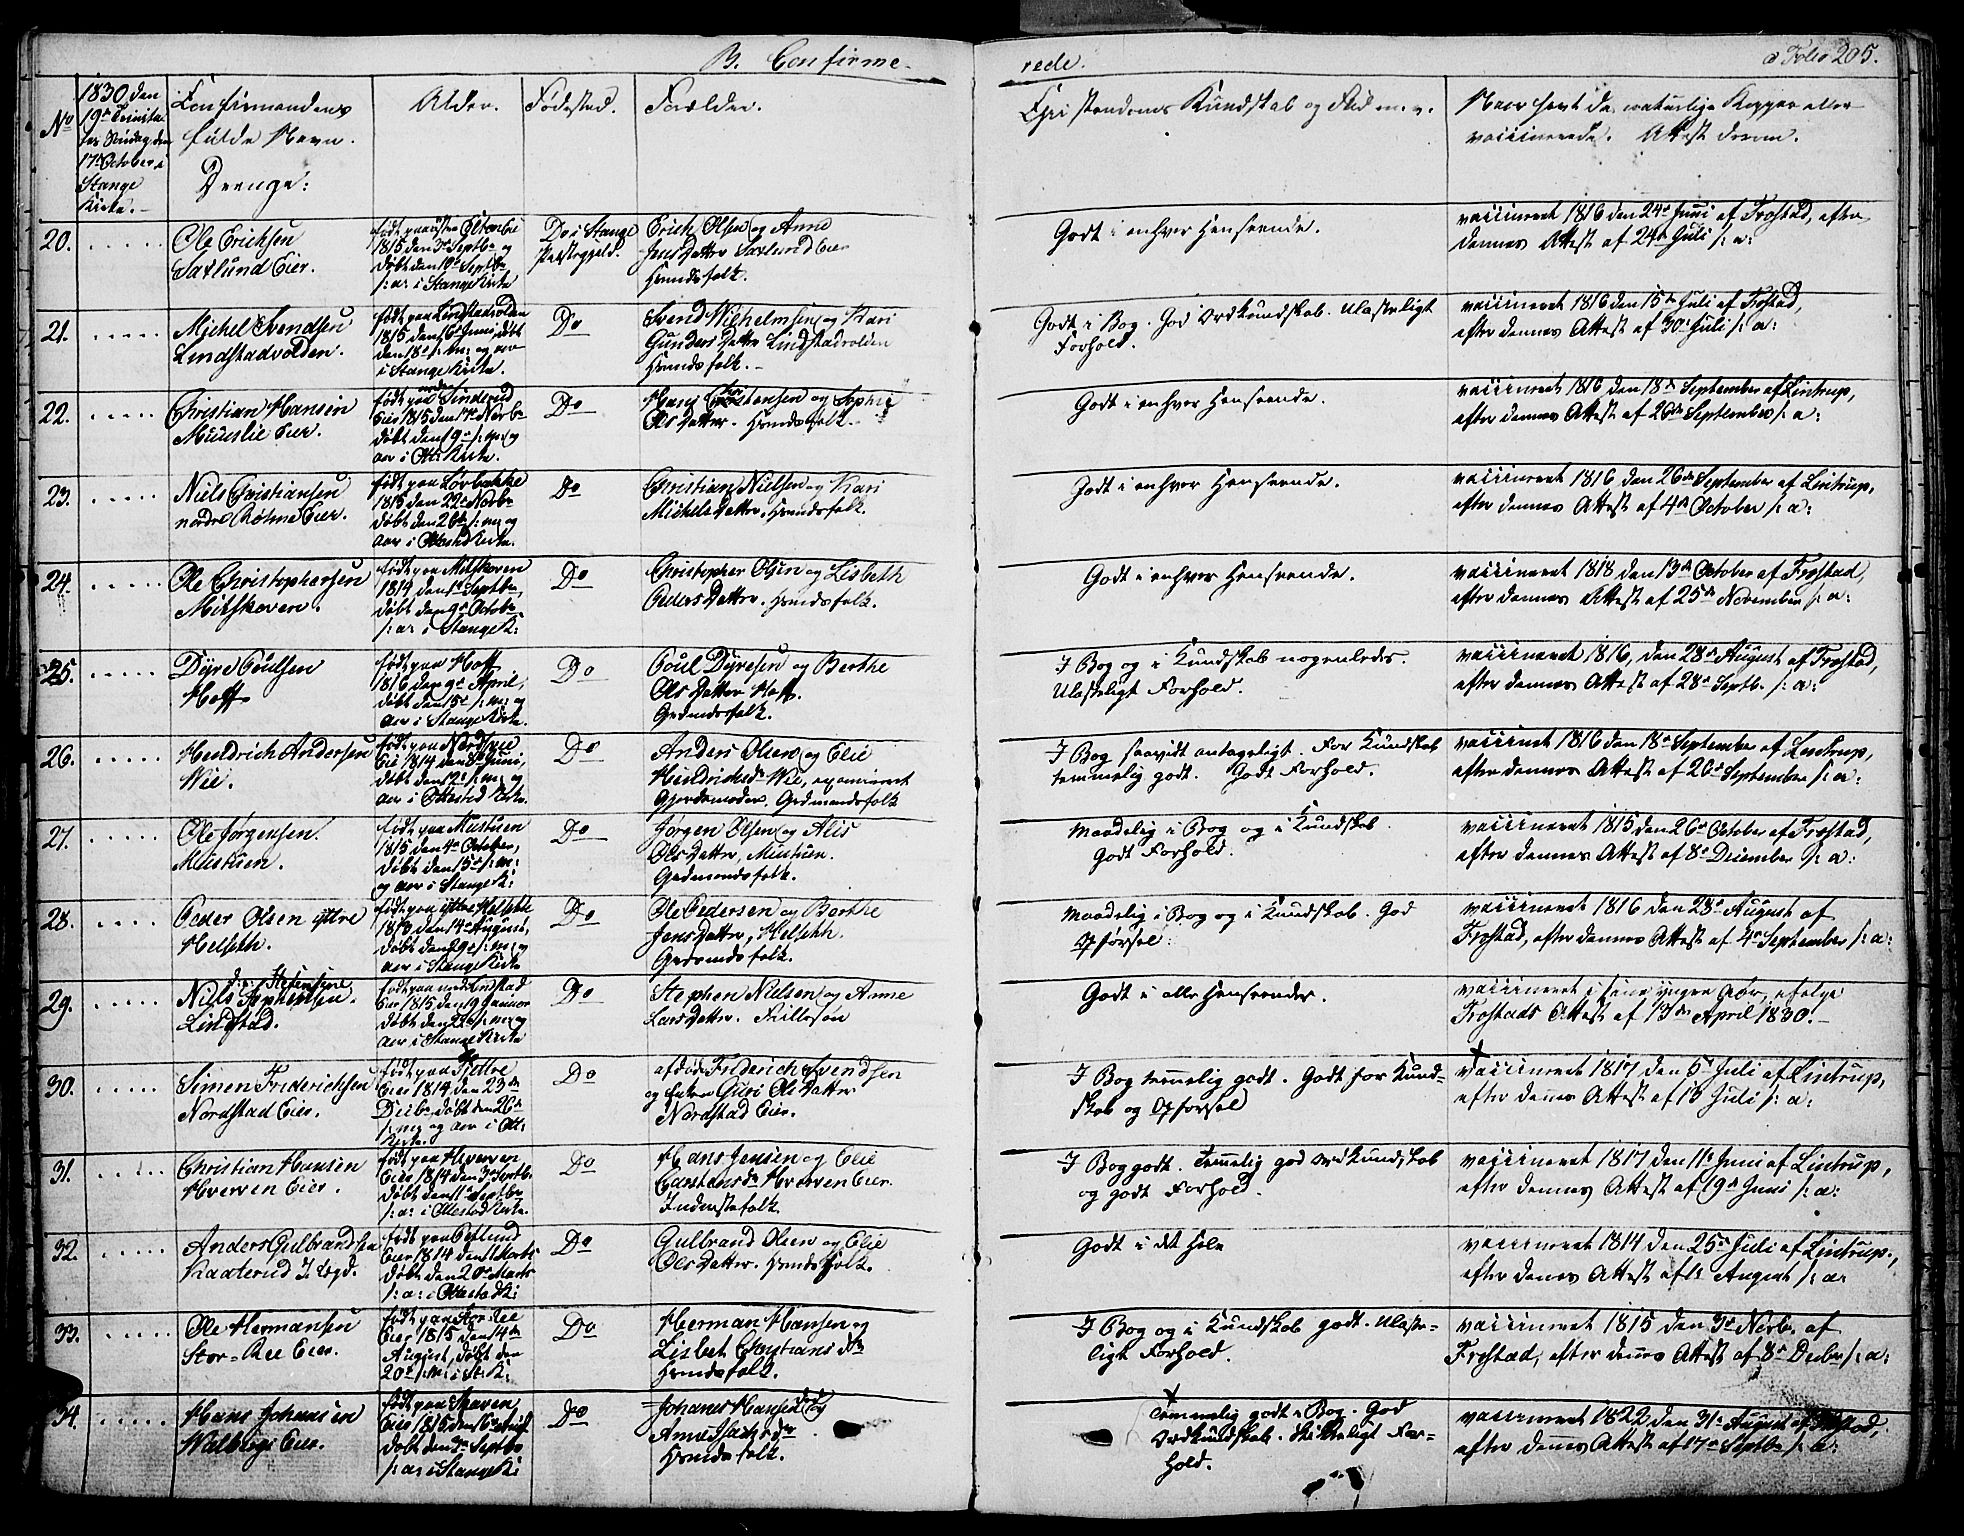 B. Confirme-
rede.
Folio 205.
No
1830 den
19de Trinita-
tis Søndag, den
17de October i
Stange
Kirke.
Confirmandens
fulde Navn.
Drenge:
Alder.
Fødested.
Forældre.
Christendoms Kundskab og Flid m. v.
Naar havt de naturlige Kopper eller
vaccinerede. Attest derom.
20.
Ole Erichsen
Saxlund Eier.
1815 den 3de Septbr og
døbt den 10de Septbr
s: a: i Stange Kirke
Do i Stange
Præstegjeld.
Erich Olsen og Anne
Jens Datter Saxlund Eier
Huusmandsfolk.
Godt i enhver Henseende.
vaccineret 1816 den 24de Juni af Frostad, efter
dennes Attest af 24de Juli s: a:
21.
Michel Svendsen
Lindstadvolden.
født paa Lindstadvolden
1815 den 16de Juni, døbt
den 18de s: m: og aar
i Stange Kirke.
Do
Svend Wilhelmsen og Kari
Gunders Datter Lindstadvolden
Huusmandsfolk.
Godt i Bog. God Ordkundskab. Ulasteligt
Forhold.
vaccineret 1816 den 15de Juli af Frostad,
efter dennes Attest af 30te Juli s: a:
22.
Christian Hansen
Muuslie Eier.
Eier 1815 den 17de Novbr
døbt den 19de s: m: og
aar i Ott: Kirke.
Do
Hans Christensen og Sophie
Ols Datter. Huusmandsfolk.
Godt i enhver Henseende.
vaccineret 1816 den 18de September af Lintrup,
efter dennes Attest af 26de September s: a:
23.
Niels Christiansen
nordre Røhne Eier.
født paa Lørbakke
1815 den 22de Novbr
døbt den 26de s: m: og
aar i Ottestad Kirke.
Do
Christian Nielsen og Kari
Michels Datter. Huusmandsfolk.
Godt i enhver Henseende.
vaccineret 1816 den 26de September af Lintrup,
efter dennes Attest af 4de October s: a:
24.
Ole Christophersen
Milskoven.
født paa Milskoven
1814 den 1ste Septbr,
døbt den 9de Octobr
s: a: i Stange K:
Do
Christopher Olsen og Lisbeth
Peders Datter. Huusmandsfolk.
Godt i enhver Henseende.
vaccineret 1818 den 13de October af Frostad,
efter dennes Attest af 25de November s: a:
25.
Dyre Poulsen
Hoff
født paa Hoff
1816 den 9de April,
døbt den 15de s: m: og
aar i Stange Kirke.
Do
Poul Dyresen og Berthe
Ols Datter Hoff.
Gaardmandsfolk.
I Bog og i Kundskab nogenledes.
Ulasteligt Forhold.
vaccineret 1816, den 28de August af Frostad,
efter dennes Attest af 28de Septb. s: a:
26.
Hendrich Andersen
Wie.
født paa Nordhvie
Eie 1814 den 8de Juni,
døbt den 12te s: m: og
aar i Ottestad Kirke.
Do
Anders Olsen og Elie
Hendrichsdr Wie, examineret
Gjordemoder. Gaardmandsfolk
I Bog saavidt antageligt. For Kundskab
temmelig godt. Godt Forhold.
vaccineret 1816 den 18de September af Lintrup,
efter dennes Attest af 26de September s: a:
27.
Ole Jørgensen.
Mustuen.
født paa Mustuen
1815 den 4de October,
døbt den 15de s: m:
og aar i Stange K:
Do
Jørgen Olsen og Alis
Ols Datter, Mustuen.
Gaardmandsfolk.
Maadelig i Bog og i Kundskab
Godt Forhold.
vaccineret 1815 den 26de October af Frostad,
efter dennes Attest af 8de December s: a:
28.
Peder Olsen yttre
Helseth.
født paa yttre Helseth
den 14de August,
døbt den s: m: og
aar i Stange Kirke
Do
Ole Pedersen og Berthe
Jens Datter, Helseth.
Gaardmandsfolk.
Maadelig i Bog og i Kundskab. God
Opførsel.
vaccineret 1816 den 28de August af
Frostad, efter dennes Attest af 4de September s: a:
29.
Niels Stephensen.
Lindstad.
Eier 1815 den 19 Januar
døbt den 22de s: m: og
aar i Stange Kirke
Do
Stephen Nielsen og Anne
Lars Datter.
Godt i alle Henseender.
vaccineret i sine yngre Aar, ifølge
Frostads Attest af 13de April 1830.
30.
Simen Friderichsen
Nordstad Eier.
født paa Fjettre
Eier 1814 den 23de
Decbr døbt den 26de
s: m: og aar i Ott:
Kirke.
Do
afdøde Friderich Svendsen
og Enken Guri Ols Datter
Nordstad Eier.
I Bog temmelig godt. Godt for Kund-
skab og Opførsel
vaccineret 1817 den 5te Juli af Lintrup,
efter dennes Attest af 13 Juli s: a:
31.
Christian Hansen
Hverven Eier.
født paa Hverven
Eier 1814 den 3de Septbr
døbt den 11te Septbr
s: a: i Ottestad Kirke.
Do
Hans Jensen og Elie
Carstensdr Hverven Eier.
Inderstefolk
I Bog godt. Temmelig god Ordkundskab
og godt Forhold.
vaccineret 1817 den 11te Juni af Lintrup,
efter dennes Attest af 19de Juni s: a:
32.
Anders Gulbrandsen
Kaaterud
Eier 1814 den Marts
døbt den 20de Marts
s: a: i Ottestad K:
Do
Gulbrand Olsen og Elie
Ols Datter. Huusmandsfolk.
Godt i det Hele
vaccineret 1814 den 25de Juli af Lintrup,
efter dennes Attest af 1ste August s: a:
33.
Ole Hermansen
Stor-Ree Eier.
født paa Stor Ree
Eier 1815 den 14de
August, døbt den
20de s: m: i St: K:
Do
Herman Hansen og
Lisbet Christians dr
Huusmandsfolk.
I Bog og i Kundskab godt. Ulaste-
ligt Forhold.
vaccineret 1815 den 3de Novb. af
Frostad, efter dennes Attest af 8de Decbr s: a:
34.
Hans Johansen
Walberg Eier.
døbt den 3de Septbr
s: a: i Stange K:
Do
Johanes Hansen og
Anne
Huusmandsfolk.
Temmelig godt i Bog. God
Ordkundskab. Skikkeligt For-
hold.
vaccineret 1822, den 31te August af Frostad,
efter dennes Attest af 17de Septbr s: a: